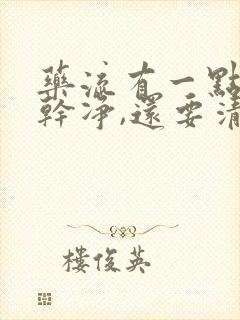 藥流有一點
幹凈,還要清
樓俊英